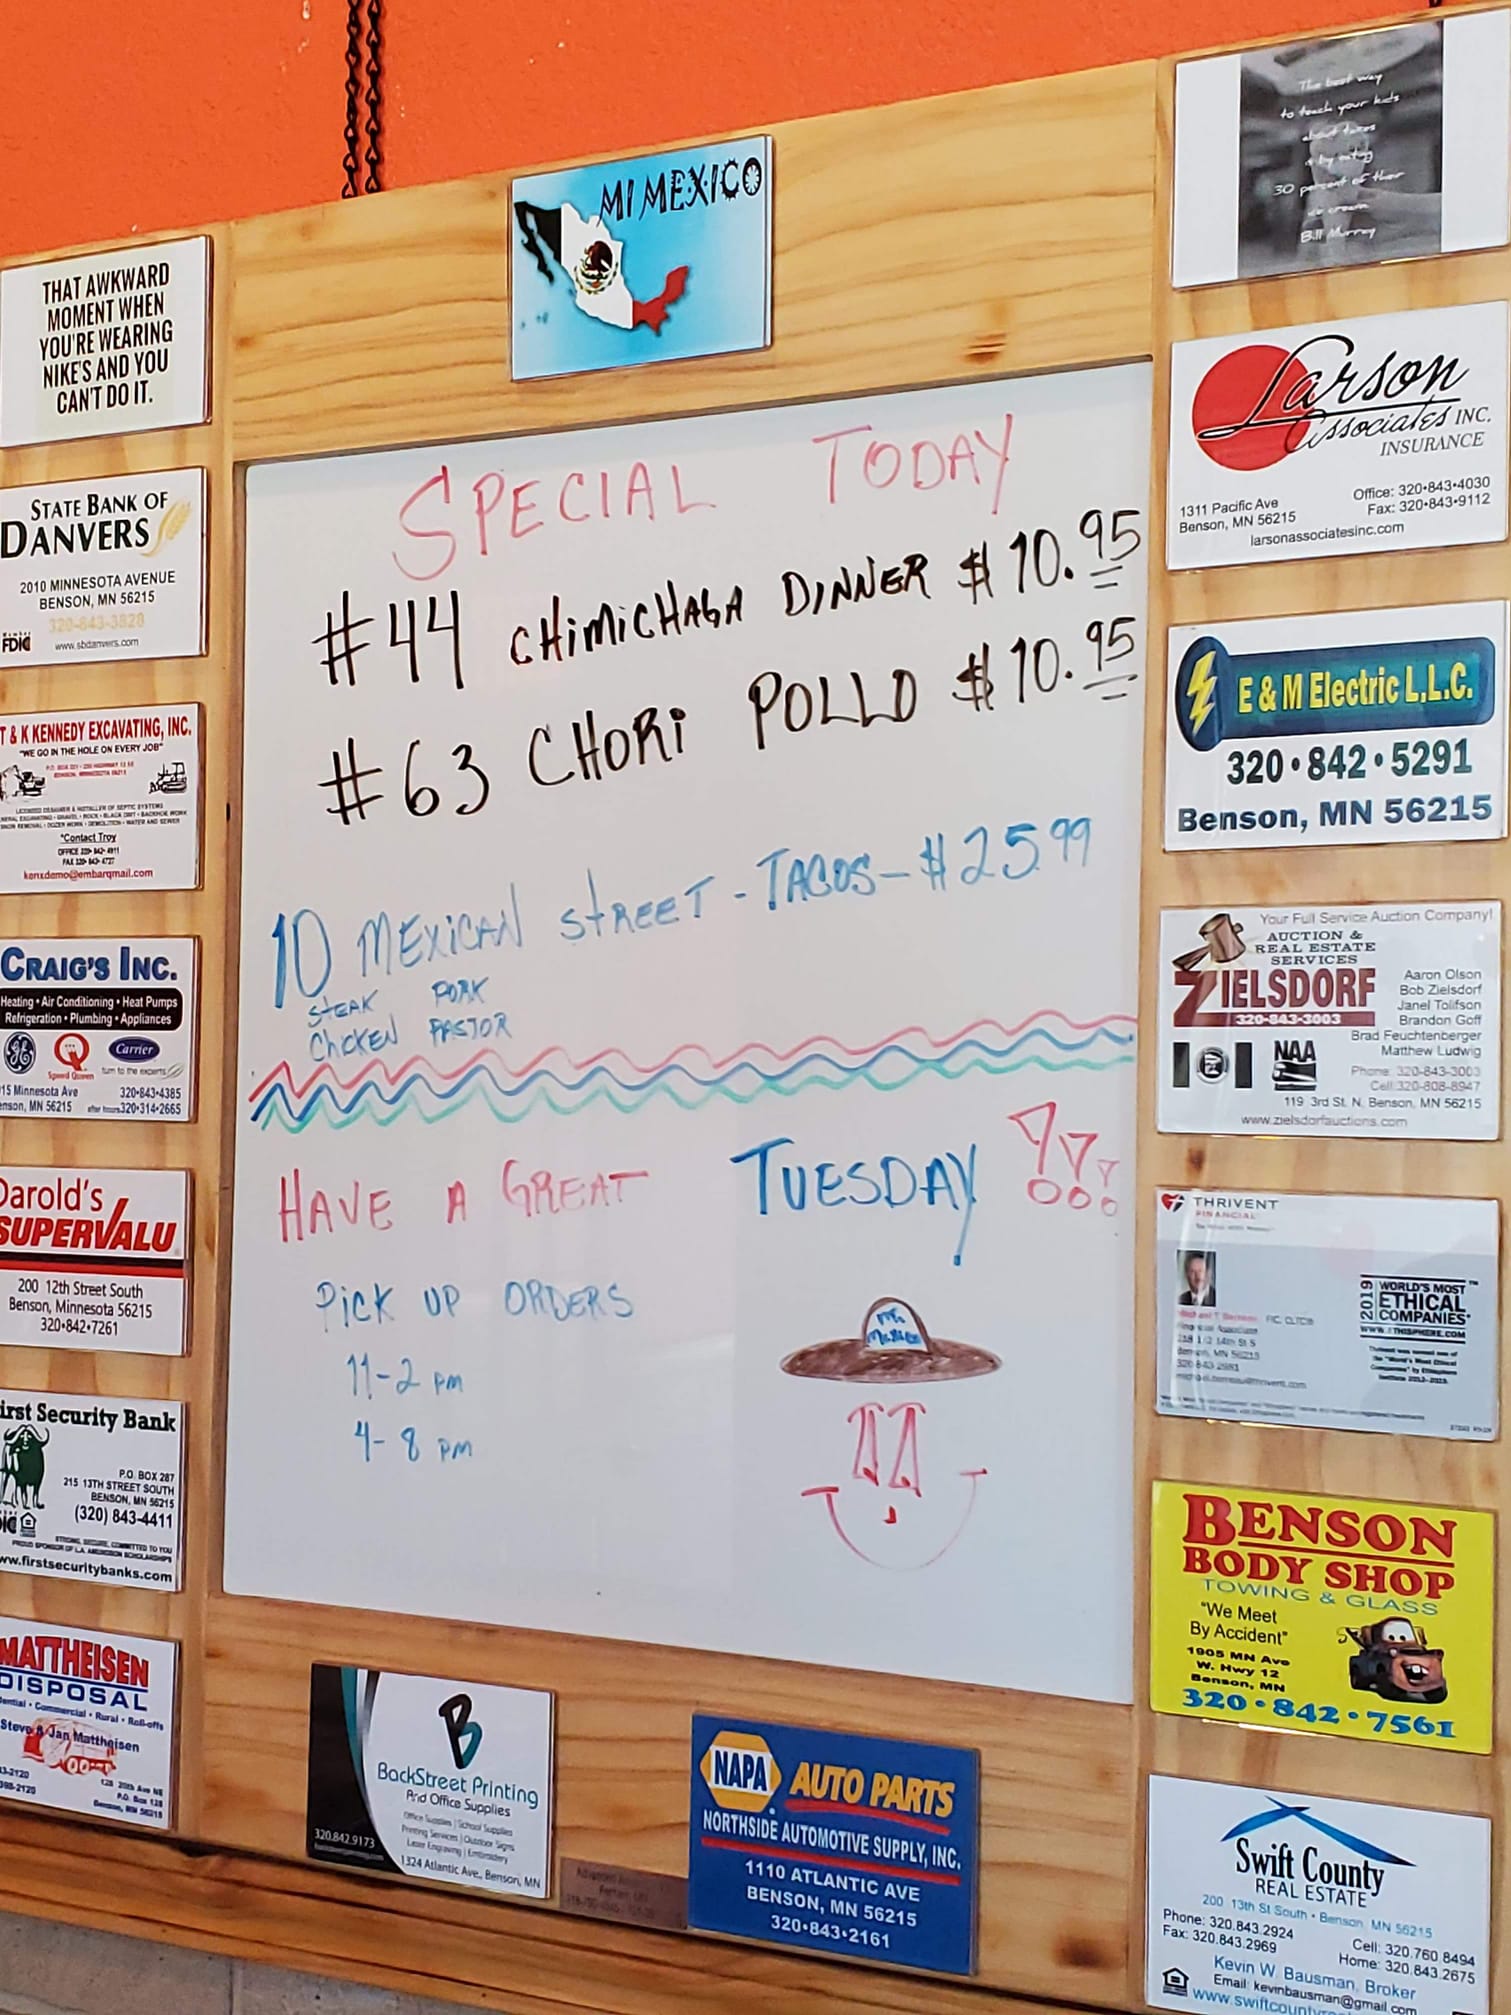 MI MEXICO
SPECIAL TODAY
#44 CHIMICHAGA DINNER $10.95
#63 CHORI POLLO $10.95
10 MEXICAN STREET - TACOS - $25.99
STEAK PORK
CHICKEN PASTOR
HAVE A GREAT TUESDAY !!!
PICK UP ORDERS
11-2 pm
4-8 pm
THAT AWKWARD
MOMENT WHEN
YOU'RE WEARING
NIKE'S AND YOU
CAN'T DO IT.
STATE BANK OF
DANVERS
2010 MINNESOTA AVENUE
BENSON, MN 56215
320-843-3828
FDIC
www.sbdanvers.com
T & K KENNEDY EXCAVATING, INC.
"WE GO IN THE HOLE ON EVERY JOB"
*Contact Troy
OFFICE 320-842-4911
FAX 320-843-4727
kenxdemo@embarqmail.com
CRAIG'S INC.
Heating • Air Conditioning • Heat Pumps
Refrigeration • Plumbing • Appliances
GE
Speed Queen
Carrier
turn to the experts
15 Minnesota Ave 320•843•4385
enson, MN 56215 after hours 320•314•2665
Darold's
SUPERVALU
200 12th Street South
Benson, Minnesota 56215
320•842•7261
irst Security Bank
P.O. BOX 287
215 13TH STREET SOUTH
BENSON, MN 56215
(320) 843-4411
ww.firstsecuritybanks.com
MATTHEISEN
DISPOSAL
ential • Commercial • Rural • Roll-offs
Steve & Jan Mattheisen
The best way
to teach your kids
about taxes
is by eating
30 percent of their
ice cream
Bill Murray
Larson
Associates INC.
INSURANCE
1311 Pacific Ave
Benson, MN 56215
Office: 320•843•4030
Fax: 320•843•9112
larsonassociatesinc.com
E & M Electric L.L.C.
320•842•5291
Benson, MN 56215
Your Full Service Auction Company!
AUCTION &
REAL ESTATE
SERVICES
ZIELSDORF
320-843-3003
Aaron Olson
Bob Zielsdorf
Janel Tolifson
Brandon Goff
Brad Feuchtenberger
Matthew Ludwig
NAA
Phone: 320-843-3003
Cell:320-808-8947
119 3rd St. N. Benson, MN 56215
www.zielsdorfauctions.com
THRIVENT
FINANCIAL
2019 WORLD'S MOST
ETHICAL
COMPANIES
WWW.ETHISPHERE.COM
BENSON
BODY SHOP
TOWING & GLASS
"We Meet
By Accident"
1905 MN Ave
W. Hwy 12
Benson, MN
320•842•7561
B
BackStreet Printing
And Office Supplies
Office Supplies | School Supplies
Printing Services | Outdoor Signs
Laser Engraving | Embroidery
320.842.9173
1324 Atlantic Ave., Benson, MN
NAPA AUTO PARTS
NORTHSIDE AUTOMOTIVE SUPPLY, INC.
1110 ATLANTIC AVE
BENSON, MN 56215
320•843•2161
Swift County
REAL ESTATE
200 13th St South • Benson, MN 56215
Phone: 320.843.2924
Fax: 320.843.2969
Cell: 320.760.8494
Home: 320.843.2675
Kevin W. Bausman, Broker
Email: kevinbausman@gmail.com